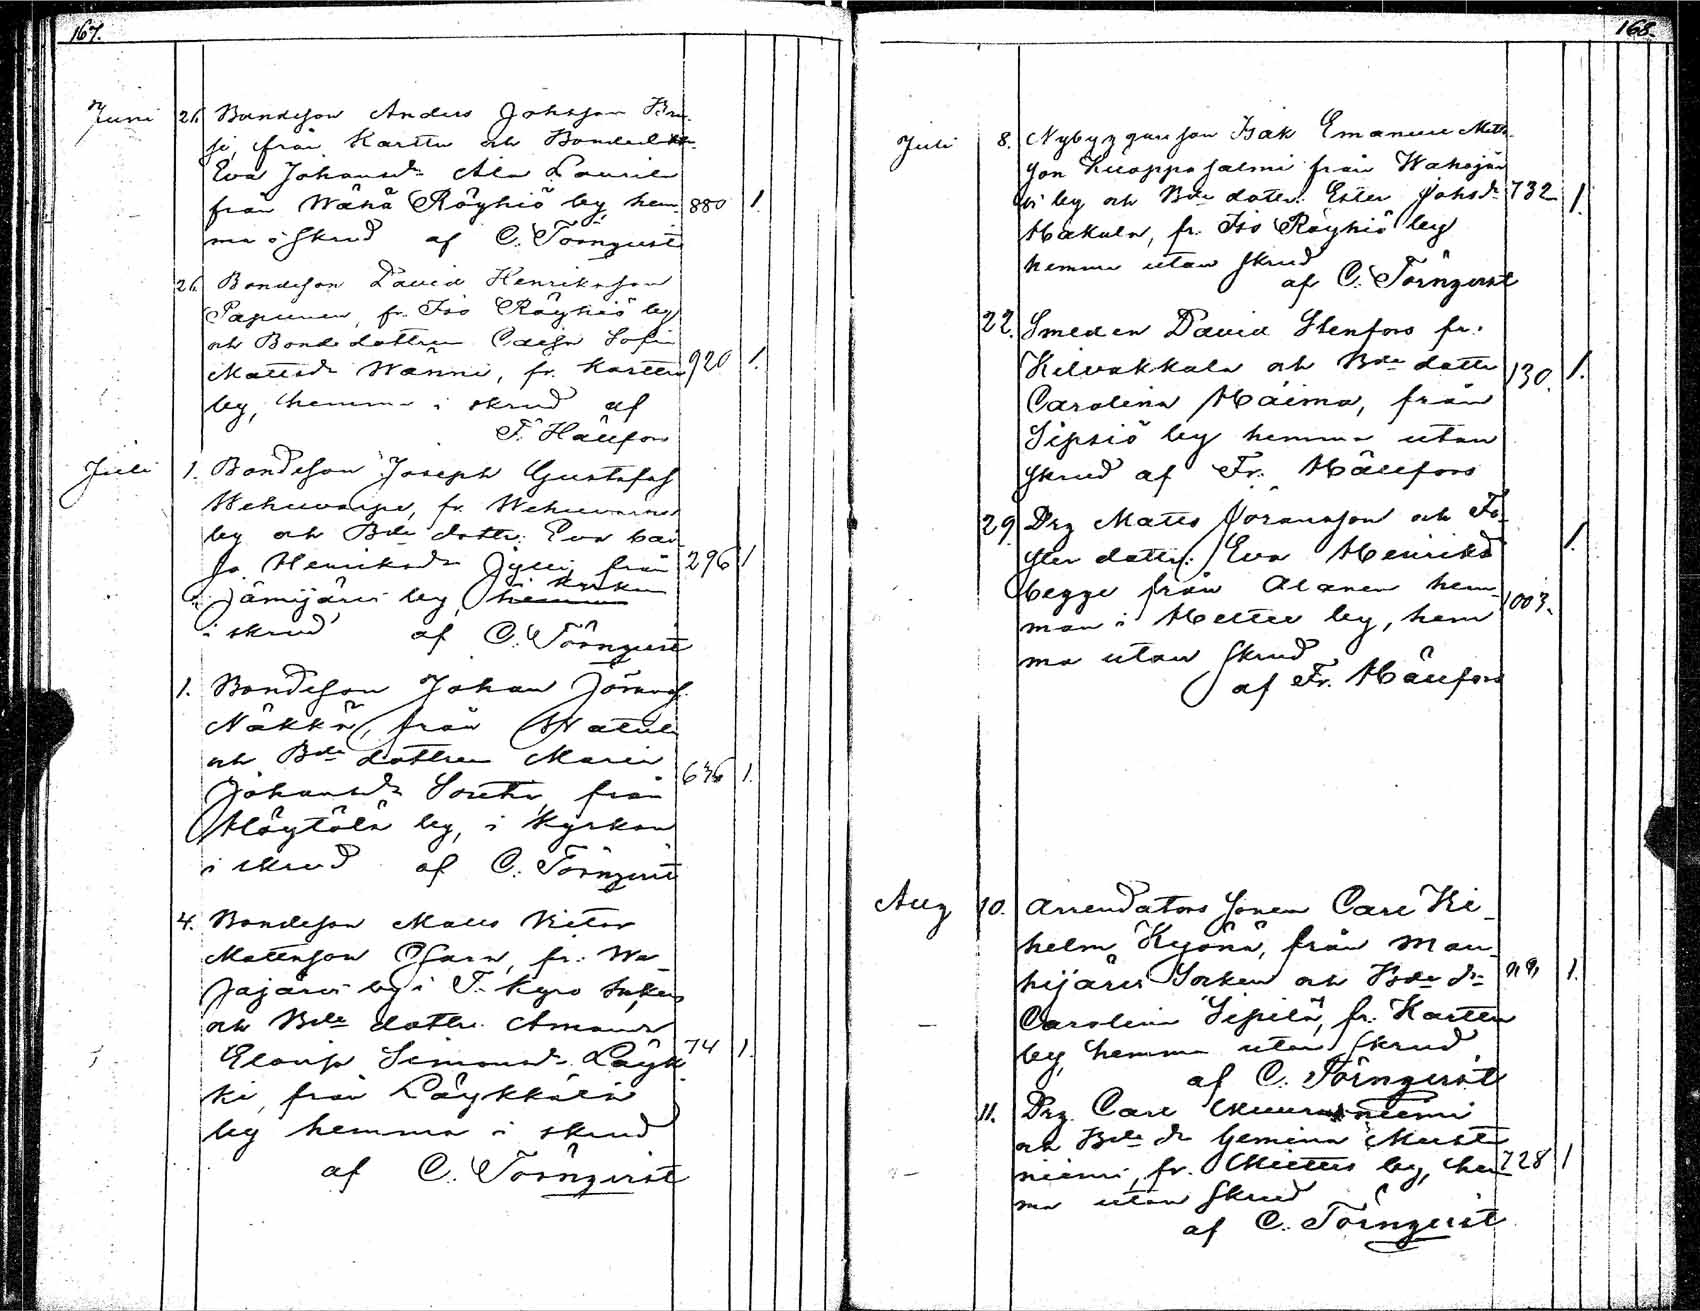 167.
Juni 26. Bondeson Anders Johansson
från Karttu och Bonde
Eva Johansdr Ala Laurila
från Wähä Röyhiö by, hem- 880 1.
ma i skrud af C. Törnqvist
26. Bondeson David Henriksson
Papunen, fr. Iso Röyhiö by
och Bonde dottren Caisa Sofia
Mattsdr Wänni, fr. Karttu 920 1.
by, hemma i skrud af
F. Hällfors
Juli 1. Bondeson Joseph Gustafss
fr.
by och Bde dottr. Eva Cai-
sa Henriksdr Jylli, från 296 1
Jämijärvi by, hemma i kyrkan
i skrud af C. Törnqvist
1. Bondeson Johan Göranss.
Näkkä, från Watula
och Bde dottren Maria
Johansdr från 636 1.
Höytölä by, i Kyrkan
i skrud af C. Törnqvist
4. Bondeson Matts Victor
Mattsson Ojara, fr. Wa-
jajärvi by i T. Kyro Socken
och Bde dottr. Amanda
Elovisa Simonsdr Läyk- 74 1.
ki, från Läykkälä
by hemma i skrud
af C. Törnqvist
168.
Juli 8. Nybyggareson Isak Emanuel Matts-
son Kuoppasalmi från Wahojär-
vi by och Bde dottr. Ester Johsdr 732 1.
Hakala, fr. Iso Röyhiö by
hemma utan skrud
af C. Törnqvist
22. Smeden David Stenfors fr.
Kilvakkala och Bde dottr 130. 1.
Carolina Haima, från
Sipsiö by hemma utan
skrud af Fr. Hällfors
29. Drg Matts Göransson och Fo-
ster dottr. Eva Henriksd 1.
begge från Alanen hem-
man i by, hem 1003.
ma utan skrud
af Fr. Hällfors
Aug 10. Arrendators sonen Carl Wil-
helm Kyönä, från Mou-
hijärvi Socken och Bde dr 1.
Carolina Sipilä, fr. Karttu
by, hemma utan skrud
af C. Törnqvist
11. Drg. Carl
och Bde dr Gemina Musta-
niemi, fr. by, hem 728 1
ma utan skrud
af C. Törnqvist